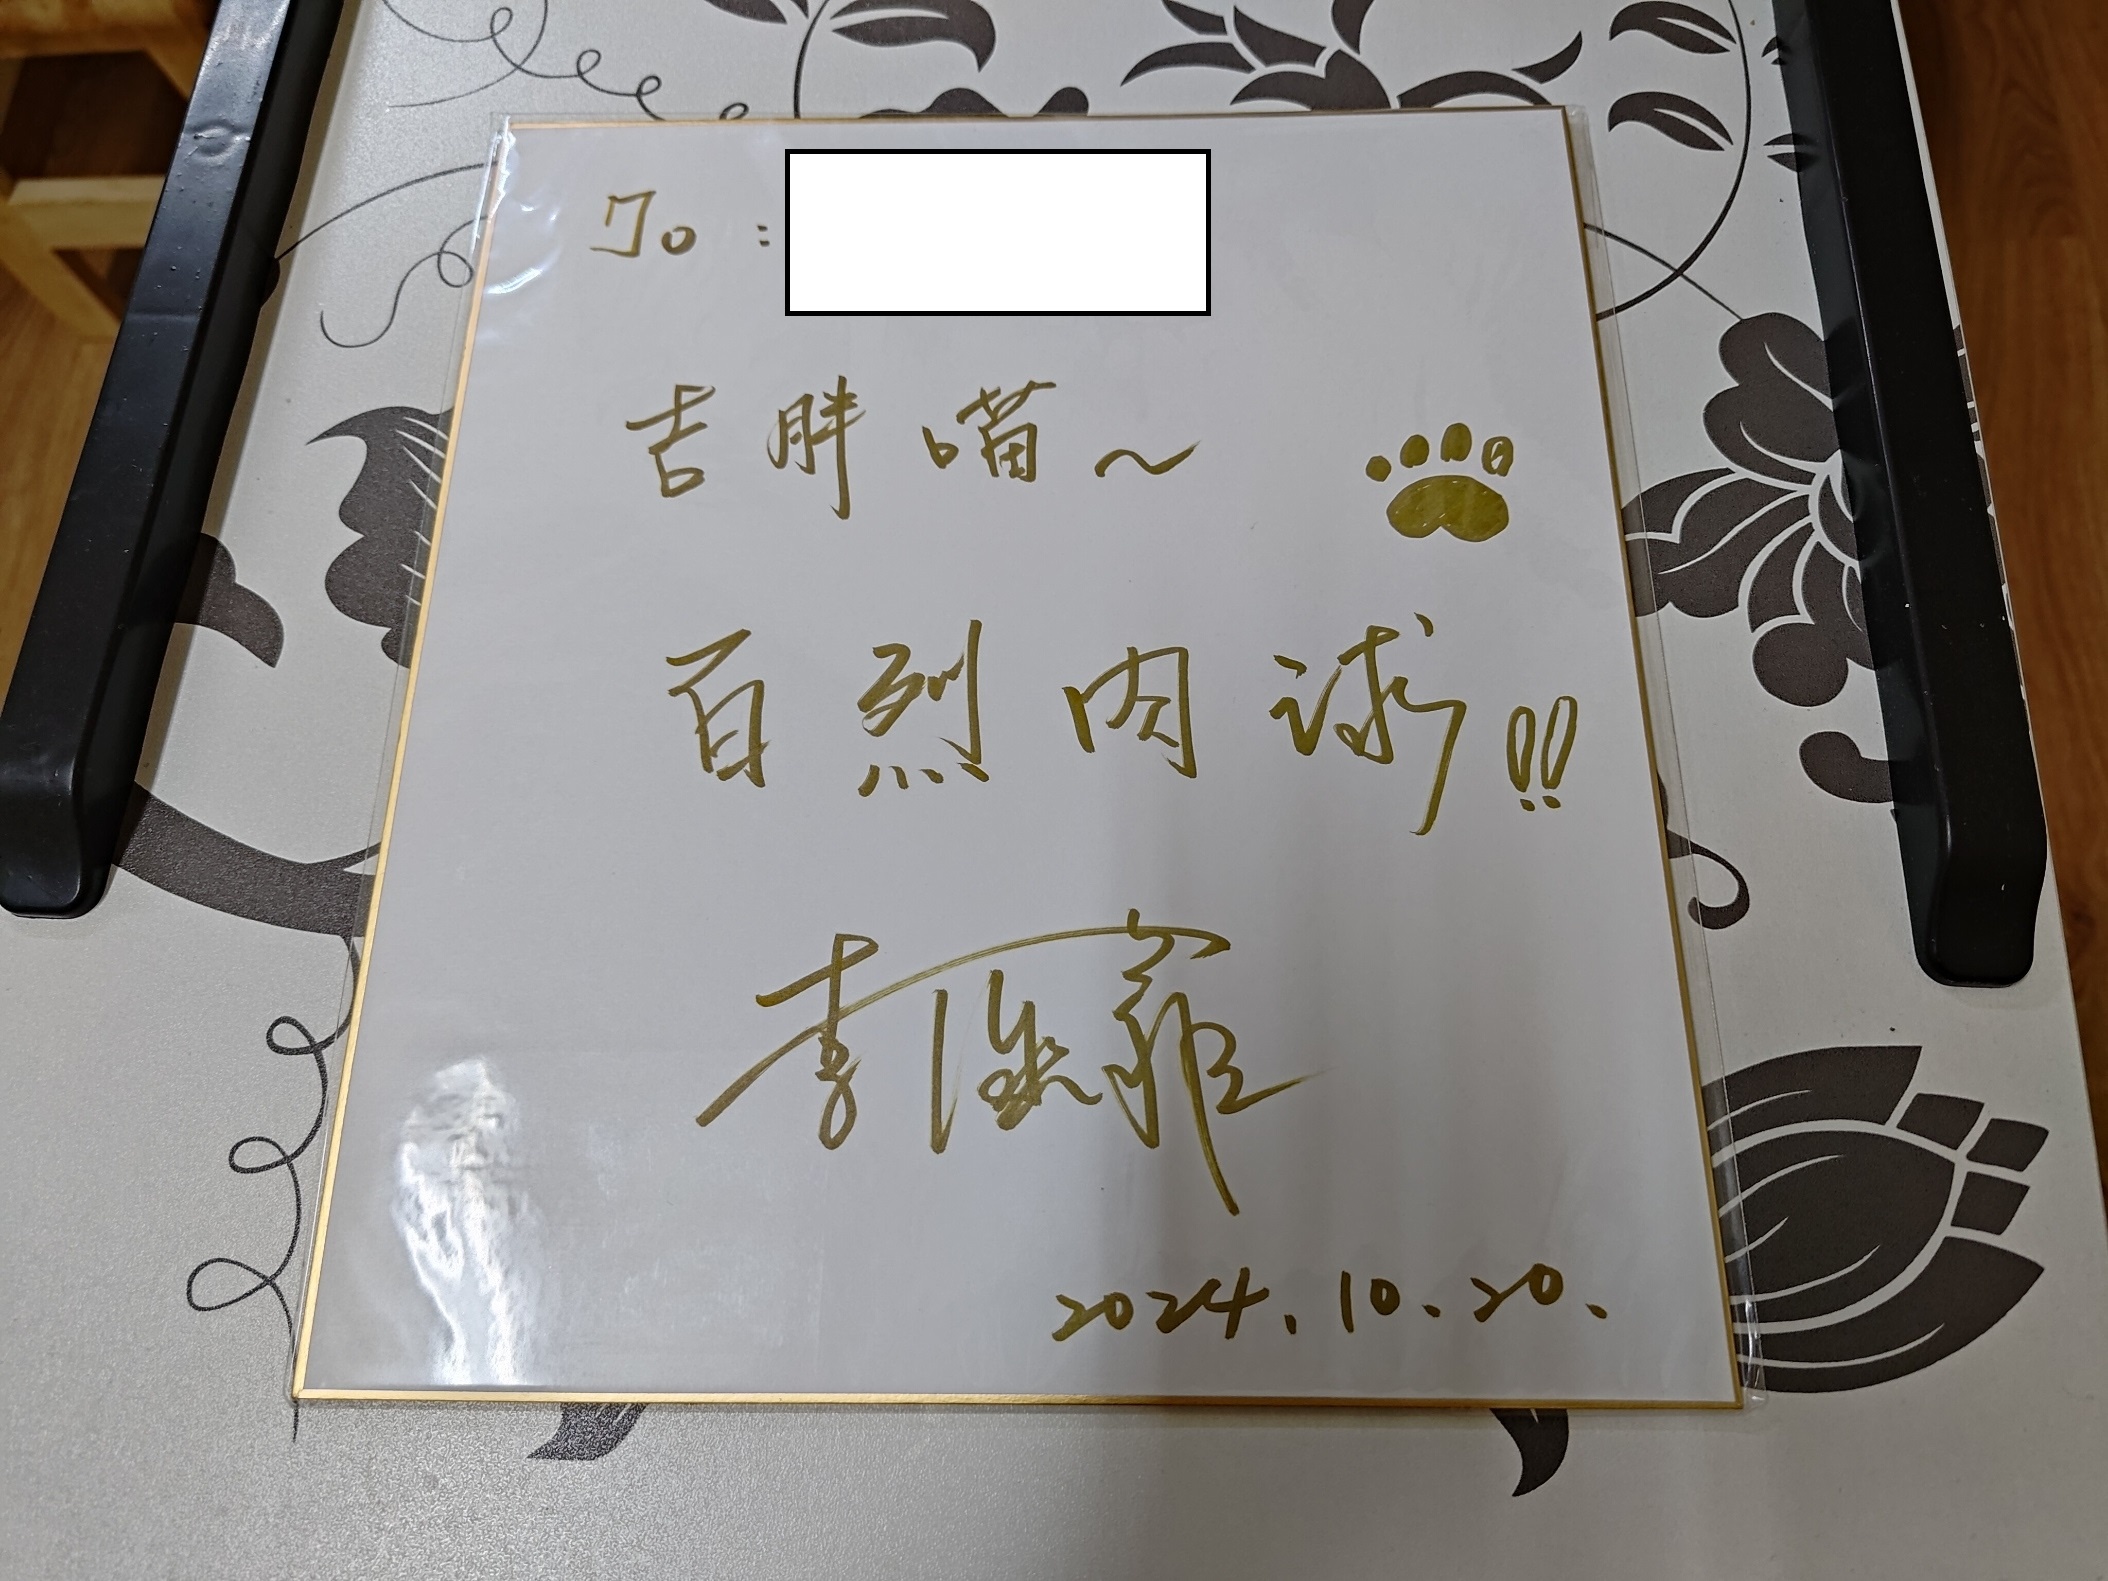 To:
吉胖喵~
百烈肉球!!
2024.10.20.